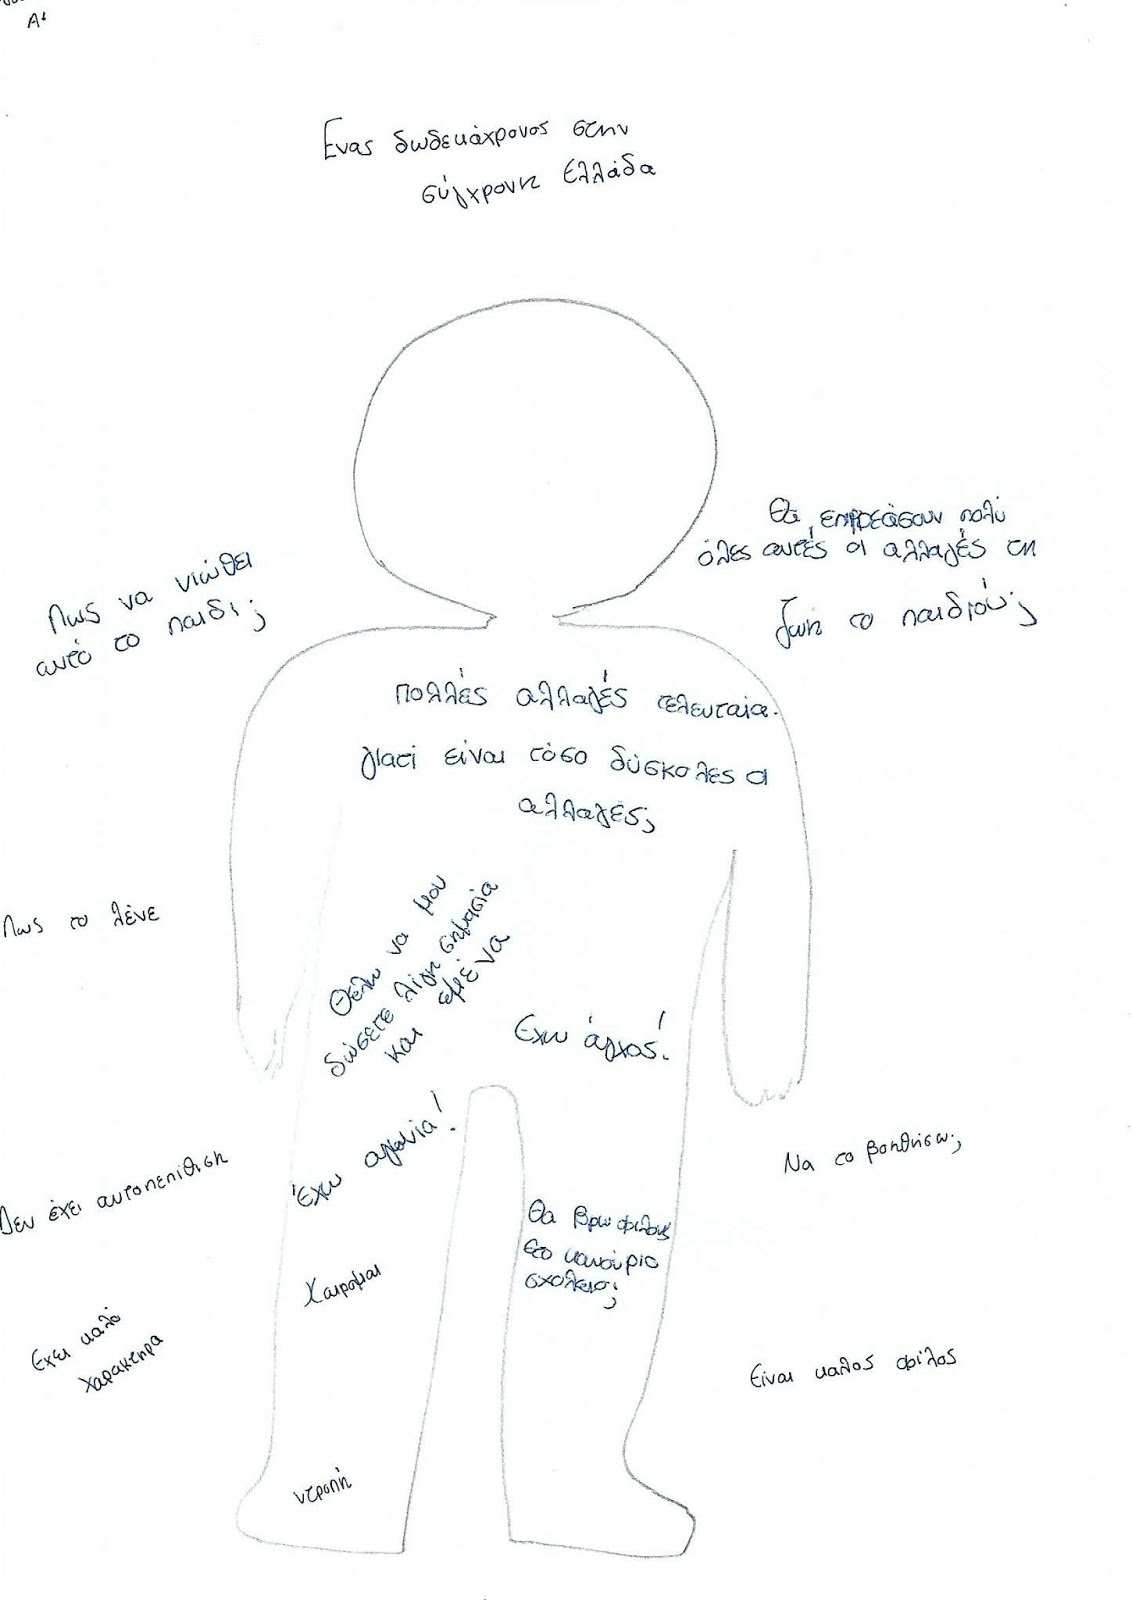 Α'
Ενας δωδεκάχρονος στην
σύγχρονη Ελλάδα
Θα επηρεάσουν πολύ
όλες αυτές οι αλλαγές τη
ζωή το παιδιού;
Πως να νιώθει
αυτό το παιδί;
πολλές αλλαγές τελευταία.
γιατί είναι τόσο δύσκολες οι
αλλαγές;
Πως το λένε
Θέλω να μου
δώσετε λίγη σημασία
και εμένα
Εχω άγχος!
Έχω αγωνία!
Να το βοηθήσω;
Δεν έχει αυτοπεπίθιση
Θα βρω φίλους
στο καινούριο
σχολειο;
Χαιρομαι
Εχει καλό
χαρακτηρα
Είναι καλος φίλος
ντροπή